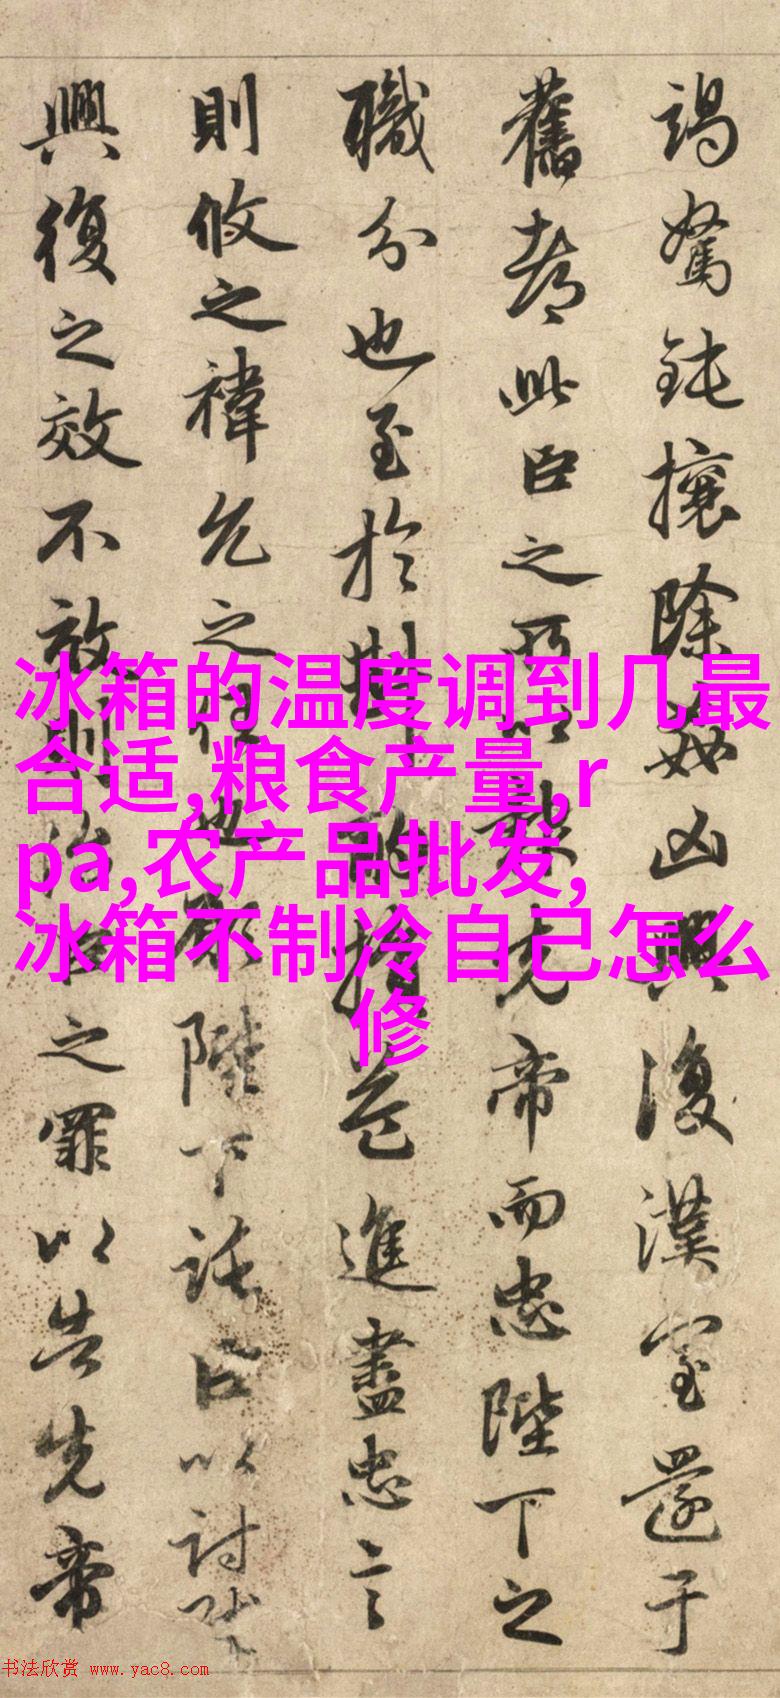 竭駑鈍攘除姦凶興復漢室還于
舊都此臣之所以報先帝而忠陛下之
職分也至於斟酌損益進盡忠言
則攸之禕允之任也願陛下託臣以討賊
興復之效不效則治臣之罪以告先帝
冰箱的温度调到几最
合适,粮食产量,r
pa,农产品批发,
冰箱不制冷自己怎么
修
书法欣赏 www.yac8.com